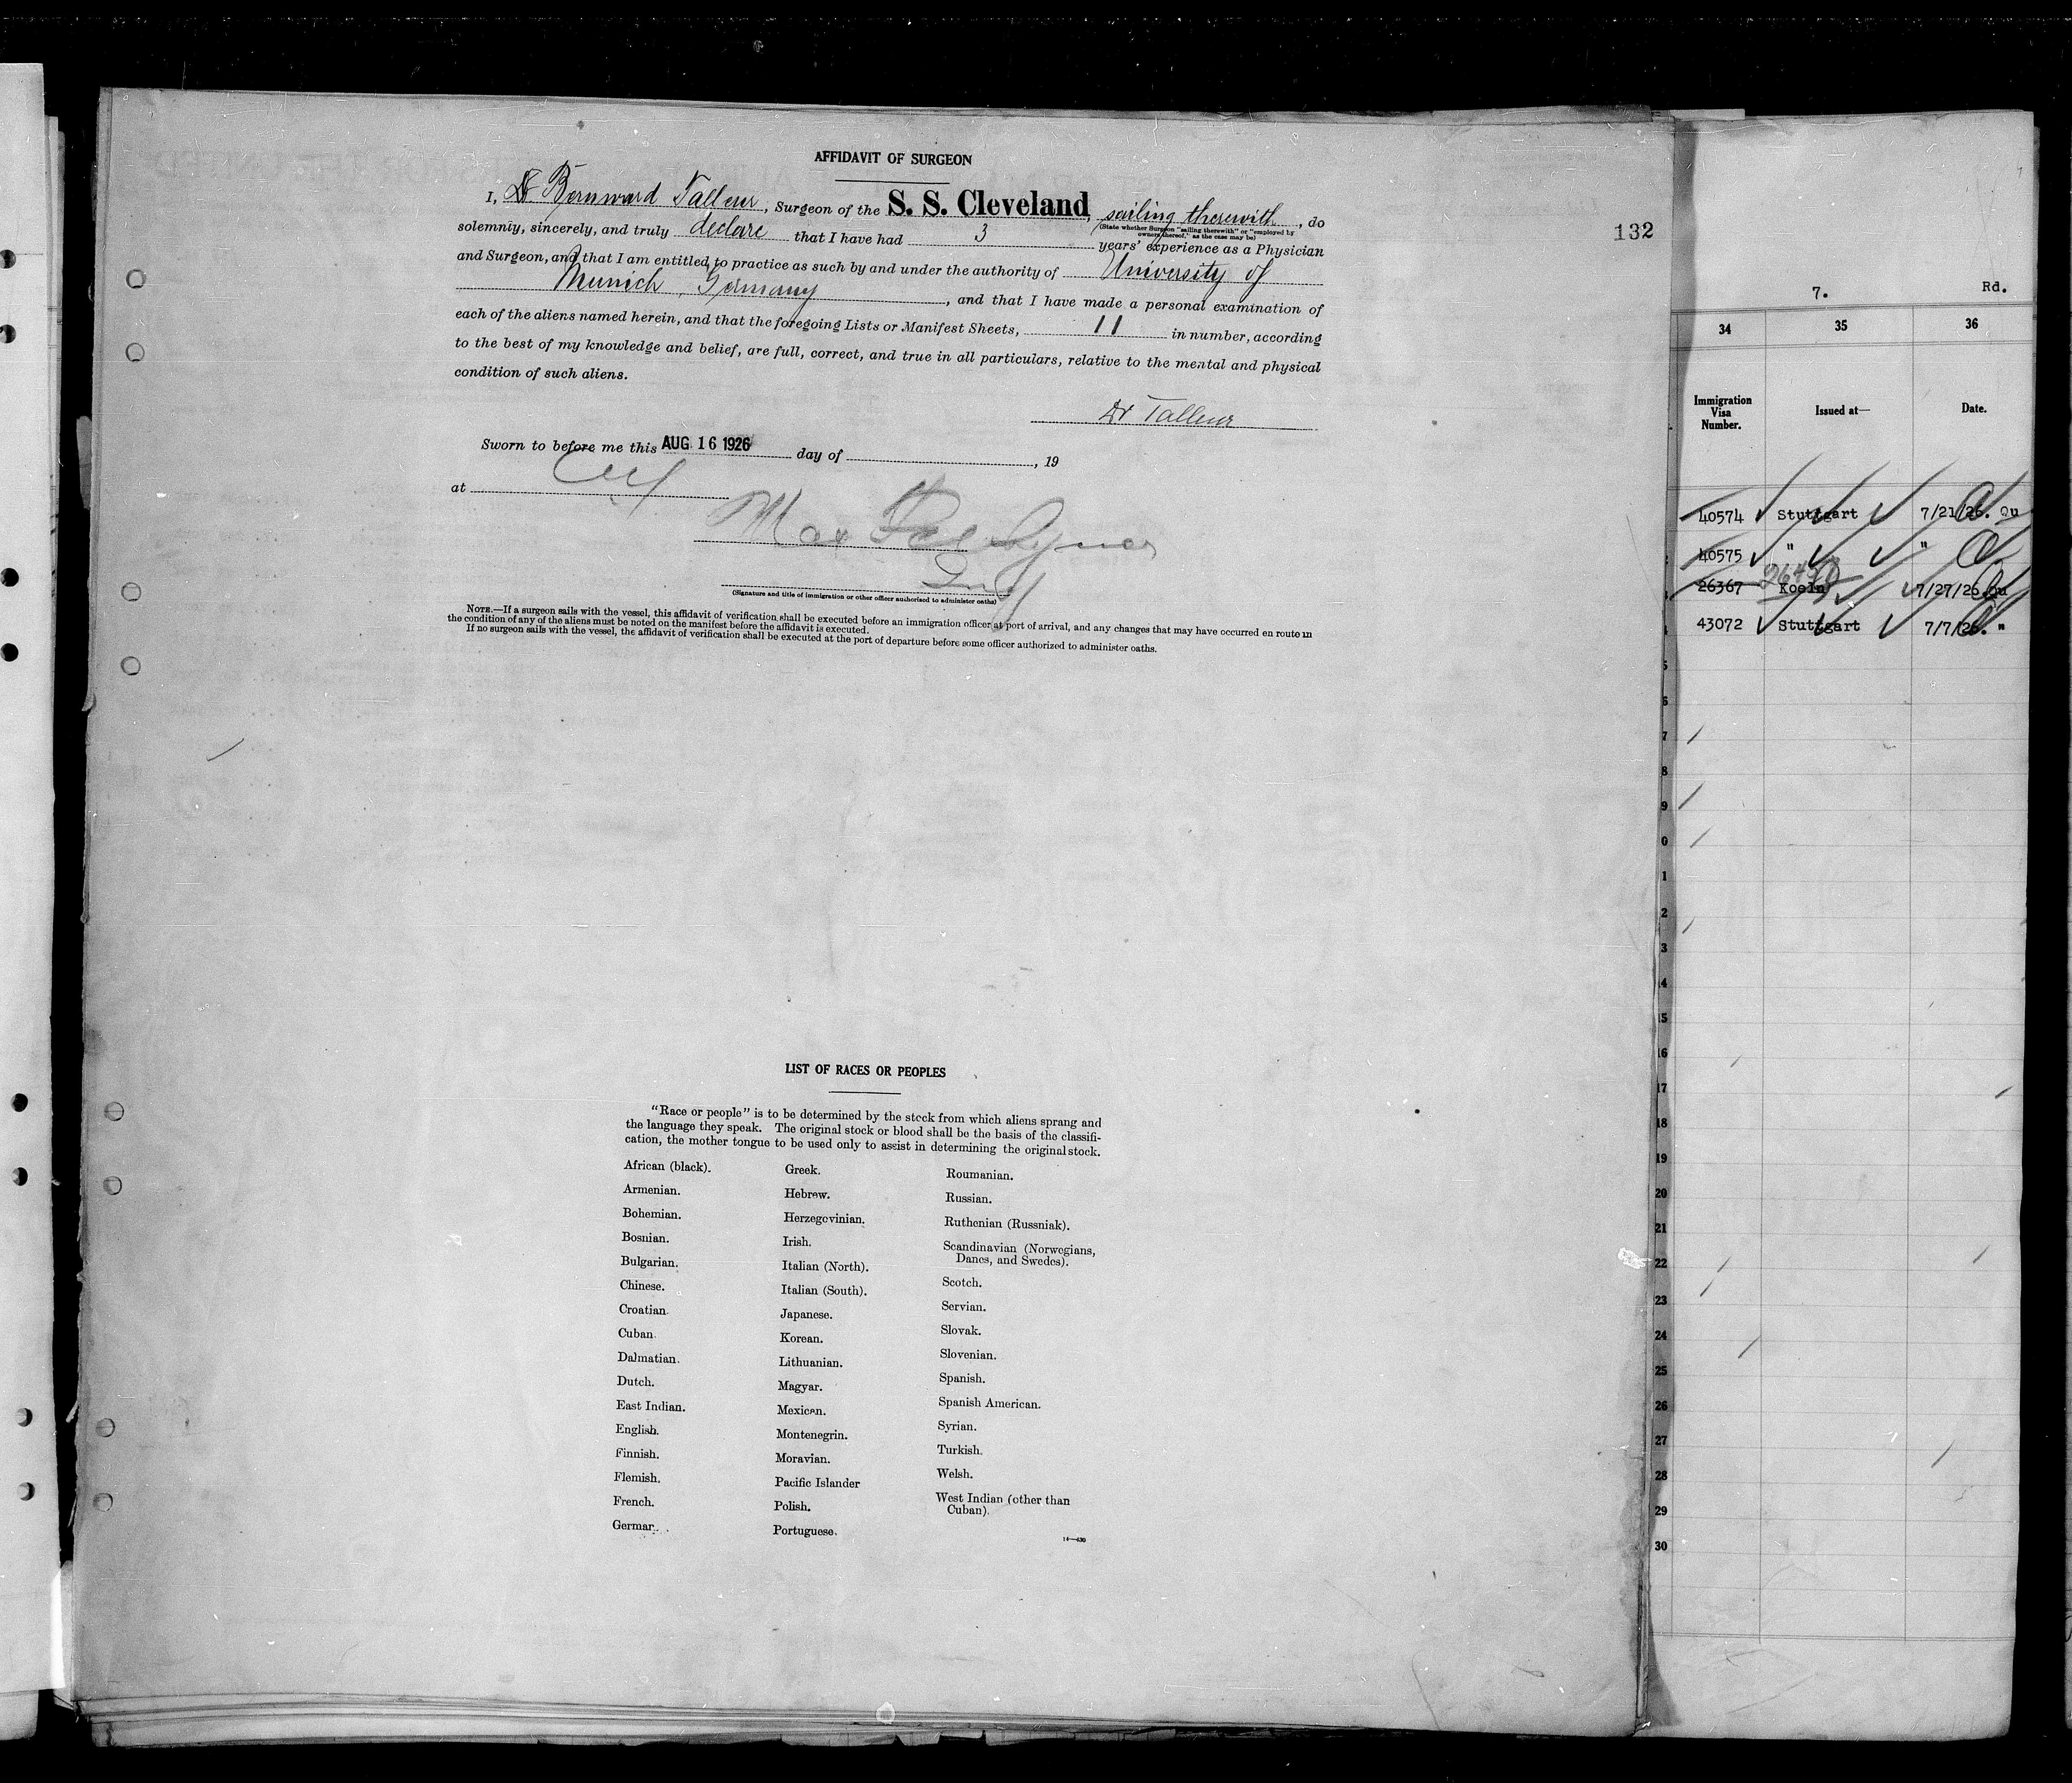 AFFIDAVIT OF SURGEON
I, Dr. Bernward Talleur, Surgeon of the S. S. Cleveland, sailing therewith, do
(State whether Surgeon "sailing therewith" or "employed by
owners thereof," as the case may be)
132
solemnly, sincerely, and truly declare that I have had 3 years' experience as a Physician
and Surgeon, and that I am entitled to practice as such by and under the authority of University of
Munich, Germany, and that I have made a personal examination of
each of the aliens named herein, and that the foregoing Lists or Manifest Sheets, 11 in number, according
to the best of my knowledge and belief, are full, correct, and true in all particulars, relative to the mental and physical
condition of such aliens.
Dr Talleur
Sworn to before me this AUG 16 1926 day of , 19
at
Max
(Signature and title of immigration or other officer authorized to administer oaths)
NOTE.—If a surgeon sails with the vessel, this affidavit of verification shall be executed before an immigration officer at port of arrival, and any changes that may have occurred en route in
the condition of any of the aliens must be noted on the manifest before the affidavit is executed.
If no surgeon sails with the vessel, the affidavit of verification shall be executed at the port of departure before some officer authorized to administer oaths.
LIST OF RACES OR PEOPLES
"Race or people" is to be determined by the stock from which aliens sprang and
the language they speak. The original stock or blood shall be the basis of the classifi-
cation, the mother tongue to be used only to assist in determining the original stock.
African (black).
Armenian.
Bohemian.
Bosnian.
Bulgarian.
Chinese.
Croatian.
Cuban.
Dalmatian.
Dutch.
East Indian.
English.
Finnish.
Flemish.
French.
German.
Greek.
Hebrew.
Herzegovinian.
Irish.
Italian (North).
Italian (South).
Japanese.
Korean.
Lithuanian.
Magyar.
Mexican.
Montenegrin.
Moravian.
Pacific Islander
Polish.
Portuguese.
Roumanian.
Russian.
Ruthenian (Russniak).
Scandinavian (Norwegians,
Danes, and Swedes).
Scotch.
Servian.
Slovak.
Slovenian.
Spanish.
Spanish American.
Syrian.
Turkish.
Welsh.
West Indian (other than
Cuban).
7. Rd.
34 35 36
Immigration
Visa
Number.
Issued at—
Date.
40574 Stuttgart 7/21/26. Qu
40575 " "
26367 Koeln 7/27/26 Qu
43072 Stuttgart 7/7/26. "
5
6
7
8
9
0
1
2
3
14
15
16
17
18
19
20
21
22
23
24
25
26
27
28
29
30